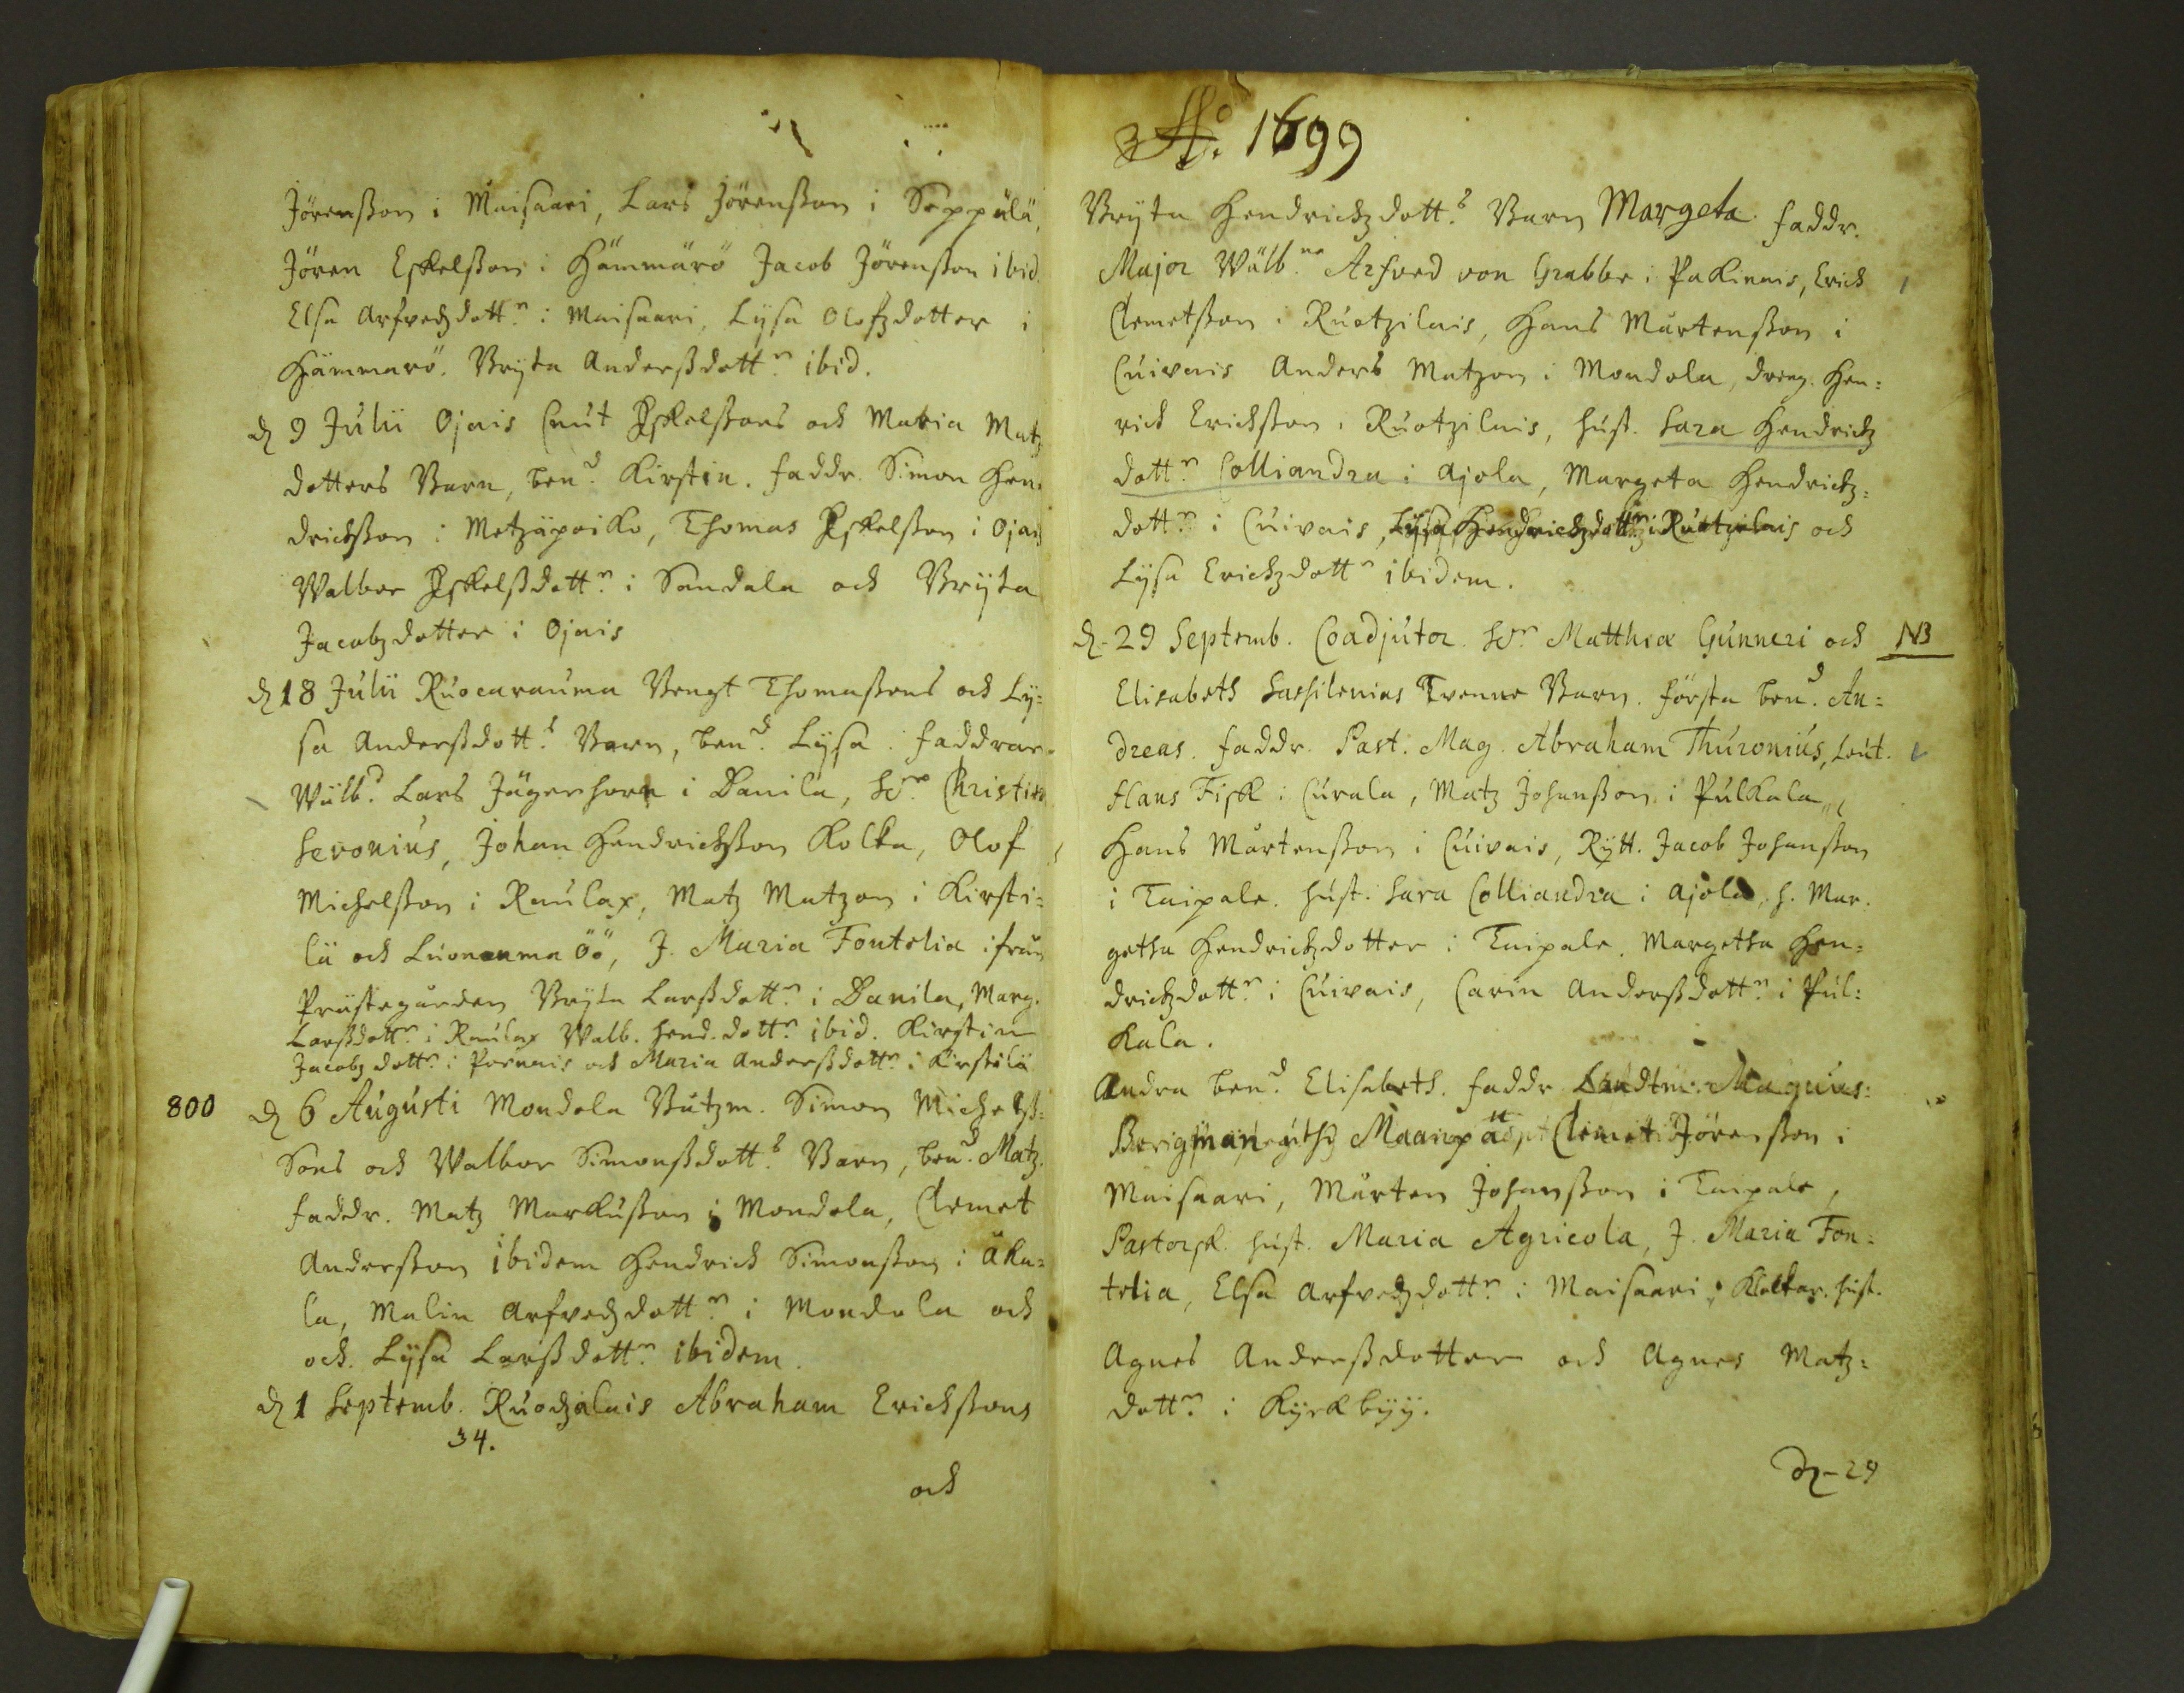 Jörenßon i Maisaari, Lars Jörenßon i Seppälä,
Jören Eskelßon i Hämmärö Jacob Jörenßon ibid.
Elsa Arfvedzdottr i Maisaari, Lysa Olofzdotter i
Hämmärö. Bryta Anderßdottr ibid.
d 9 Julii Ojais Cnut Eskelßons och Maria Matz
dotters Barn, bend Kirstin. faddr. Simon Hen-
drichßon i Metzäpoiko, Thomas Eskelßon i Ojais
Walbor Eskelßdottr i Sandala och Bryta
Jacobzdotter i Ojais
d 18 Julii Ruocarauma Bengt Thomaßons och Ly=
sa Anderßdotts Barn, bend Lysa. faddrar
Wälbd Lars Jägerhorn i Danila, Hr Christiern
Seronius, Johan Hendrichßon Kolka, Olof
Michelßon i Raulax, Matz Matzon i Kirsti=
lä och Luonanma Öö, J. Maria Fontelia ifrån
Prästegården Bryta Larßdottr i Danila, Marg.
Larßdottr i Raulax Walb. Hend. dottr ibid. Kirstin
Jacobzdottr i Pernais och Maria Anderßdottr i Kirstilä
800 d 6 Augusti Mondola Båtzm. Simon Michelß=
Sons och Walbor Simonßdotts Barn, bend Matz.
faddr. Matz Markußon i Mondola, Clemet
Anderßon ibidem Hendrich Simonßon i Äku=
la, Malin Arfvedzdottr i Mondola och
och Lysa Larßdottr ibidem.
d 1 Septemb. Ruodzalais Abraham Erichßons
34.
och
Ao. 1699
Bryta Hendrichzdotts Barn Margeta. faddr.
Major Wälbne Arfved von Grabbe i Pakinais, Erich
Clemetßon i Ruotzilais, Hans Mårtenßon i
Cuivais Anders Matzon i Mondola, dreng. Hen=
rich Erichßon i Ruotzilais, hust. Sara Hendrichz
dottr Colliandra i Ajola, Margeta Hendrichz=
dottr i Cuivais, Lysa Hendrichzdottr i Ruotzilais och
Lysa Erichzdottr ibidem.
d. 29 Septemb. Coadjutor. Hr Matthiæ Gunneri och NB
Elisabeth Sassilenias Tvenne Barn. första bend. An=
dreas. faddr. Past. Mag. Abraham Thuronius, Leut.
Hans Fisk i Curala, Matz Johanßon i Pulkala
Hans Mårtenßon i Cuivais, Rytt. Jacob Johanßon
i Taipale. hust. Sara Colliandra i Ajola, h. Mar.
getha Hendrichzdotter i Taipale. Margetha Hen=
drichzdottr i Cuivais, Carin Anderßdottr i Pul:
kala.
Andra bend Elisabeth. faddr Landtm. Magnus
Bergman Maanpää Clemet Jörenßon i
Maisaari, Mårten Johanßon i Taipale,
Pastorsk. hust. Maria Agricola, J. Maria Fon=
telia, Elsa Arfvedzdottr i Maisaari, Klockar. hust.
Agnes Anderßdotter och Agnes Matz=
dottr i Kyrkbyy.
d-29